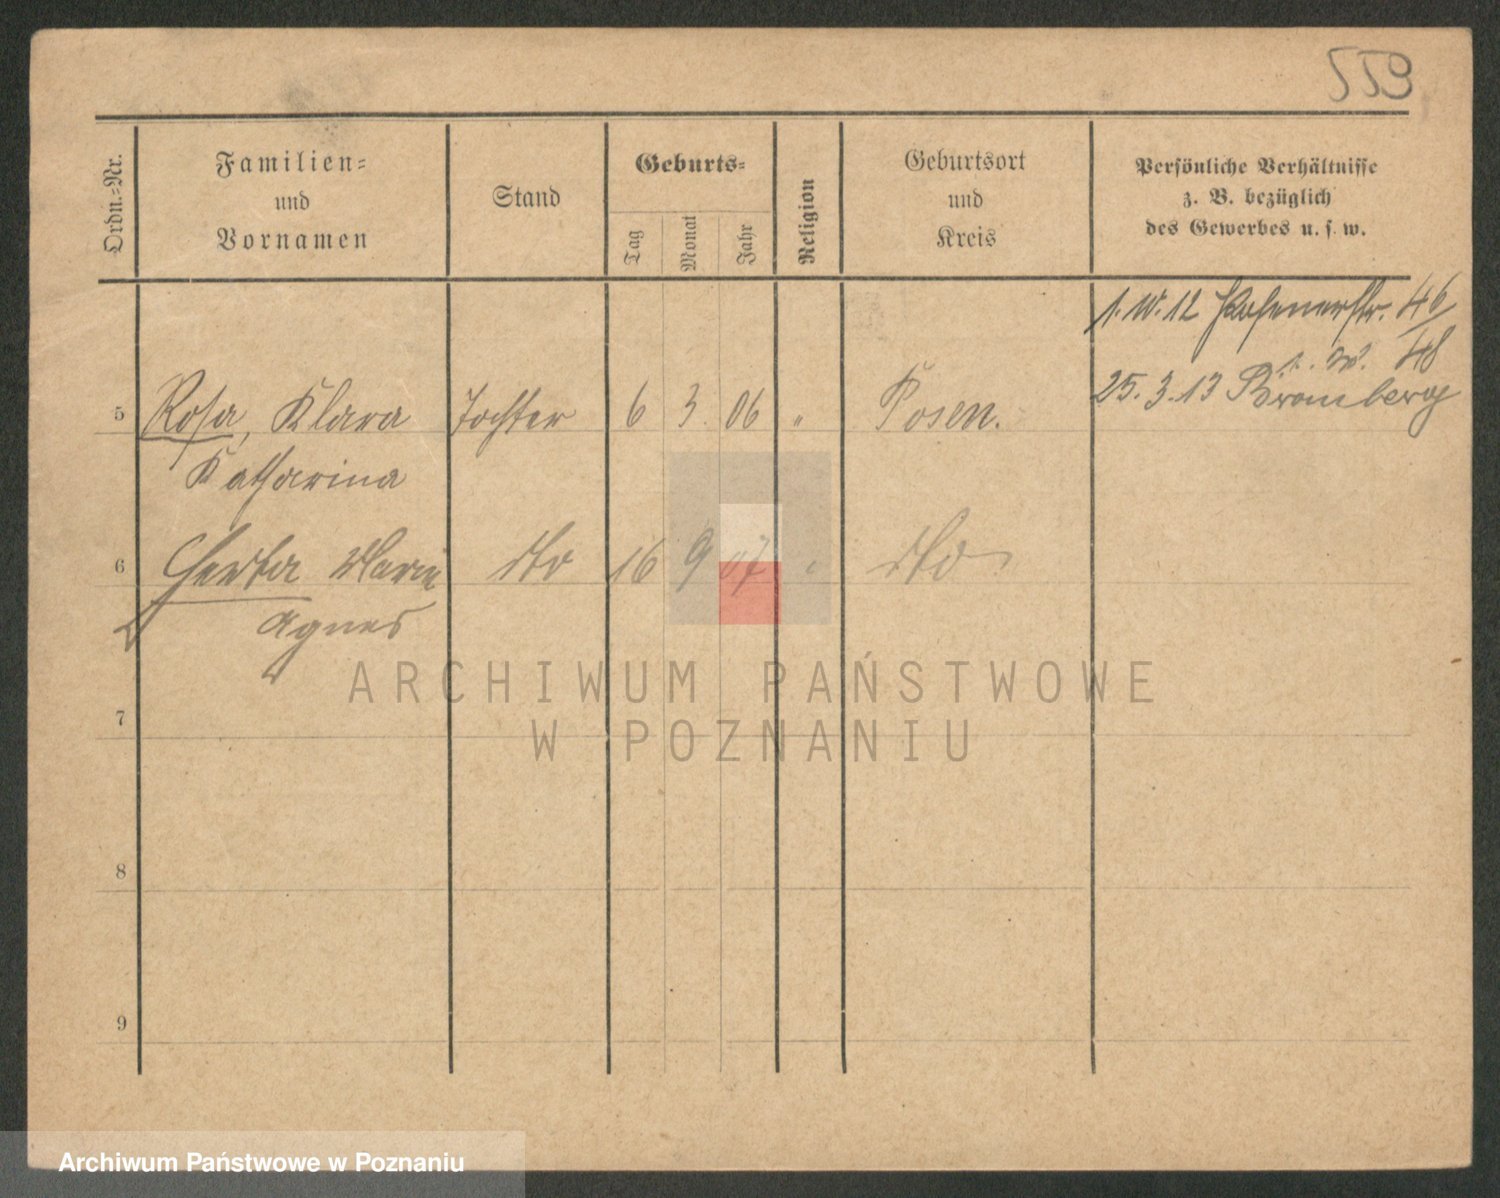 559
Ordn.-Nr.
Familien-
und
Vornamen
Stand
Geburts-
Tag
Monat
Jahr
Religion
Geburtsort
und
Kreis
Persönliche Verhältnisse
z. B. bezüglich
des Gewerbes u. s. w.
1. 10. 12 Posenerstr. 46/48
25. 3. 13 Bromberg
5 Rosa, Klara Tochter 6 3. 06 " Posen.
Katharina
6 Herta Marie dto 16 9 07 " dto
Agnes
7
8
9
ARCHIWUM PAŃSTWOWE
W POZNANIU
Archiwum Państwowe w Poznaniu